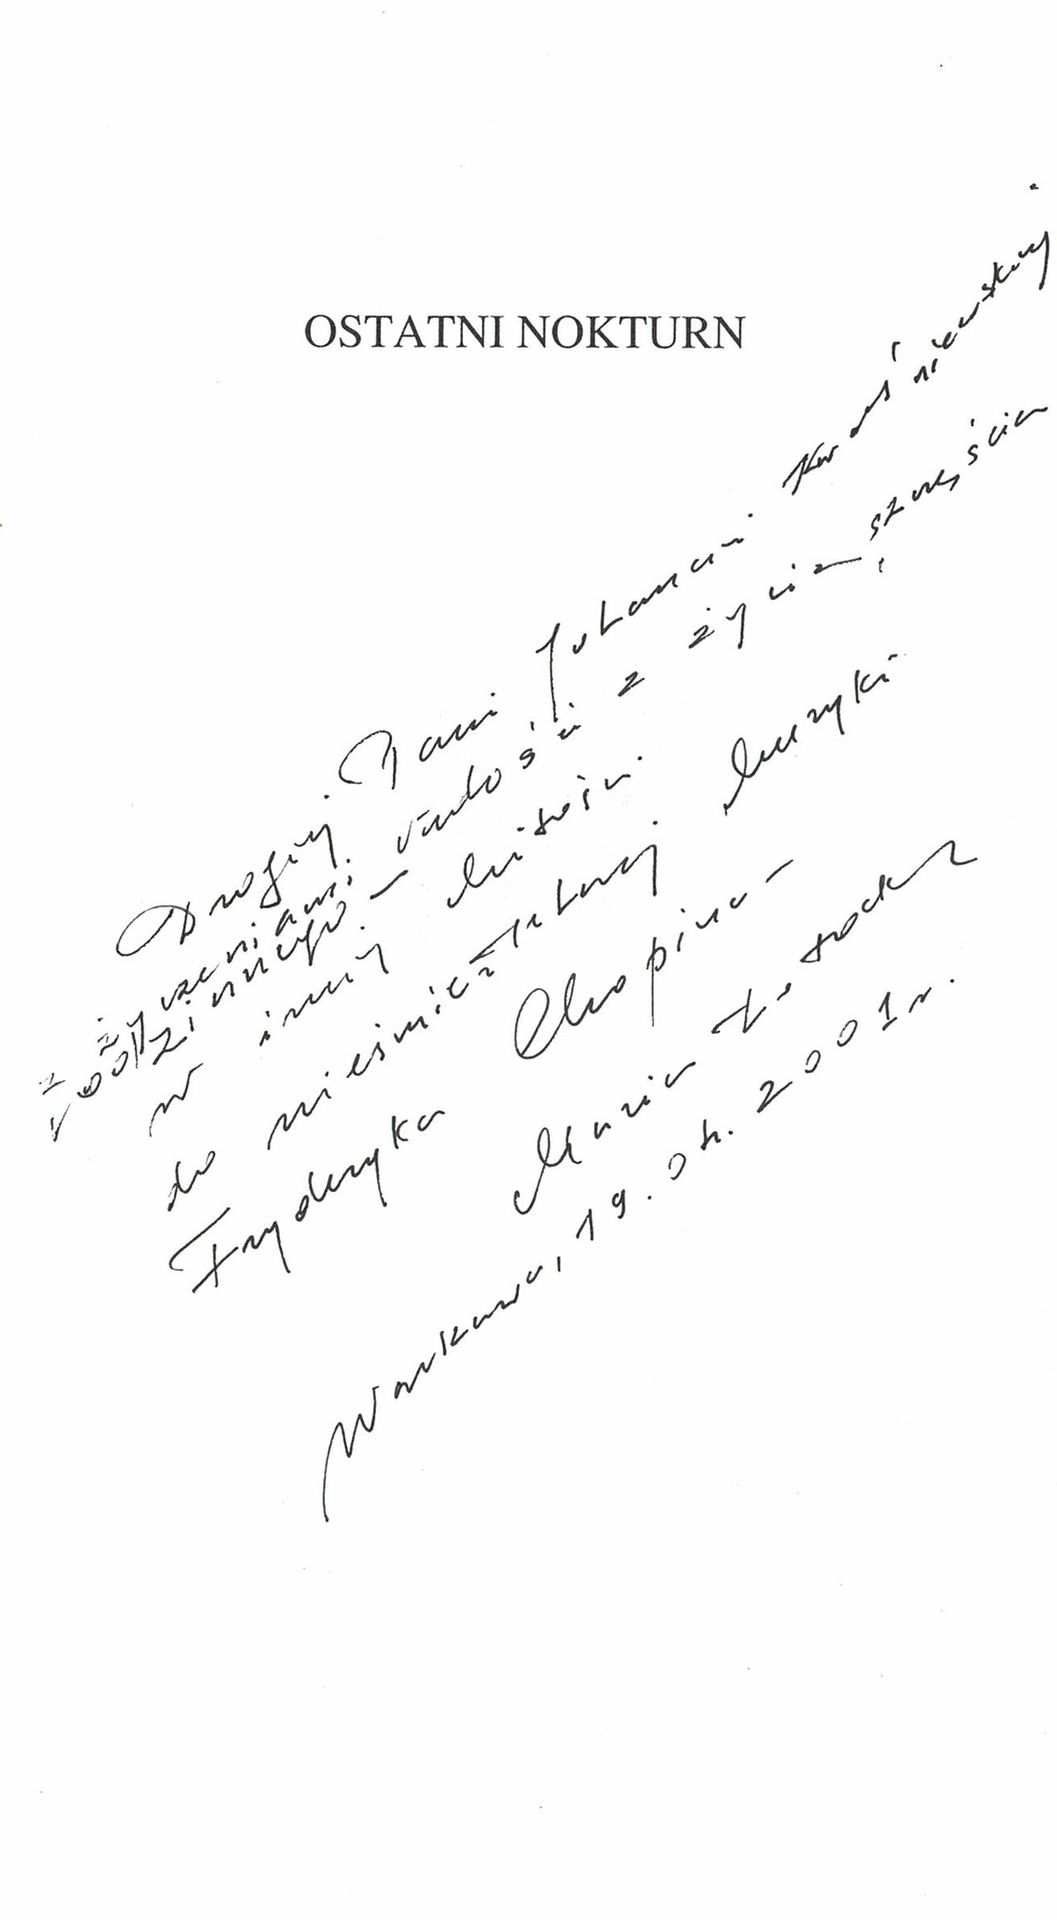 OSTATNI NOKTURN
Drogiej Pani Jolancie
z życzeniami radości z życia, szczęścia
rodzinnego –
w imię miłości
do nieśmiertelnej muzyki
Fryderyka Chopina –
Maria
Warszawa, 19.04.2001 r.